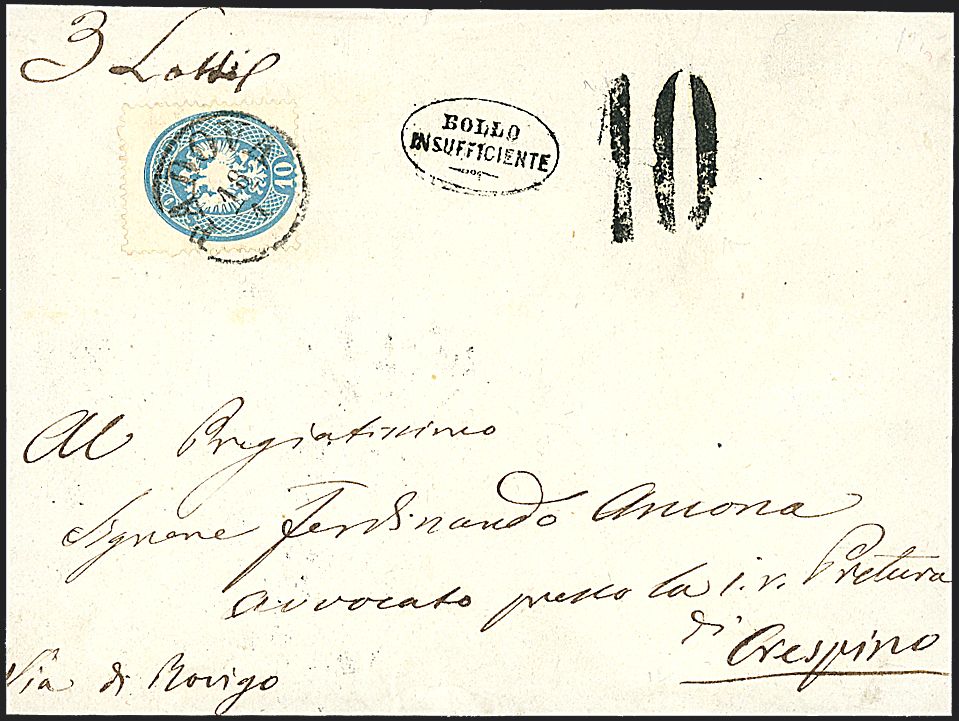 3 Lotti
10
VERONA
BOLLO
INSUFFICIENTE
10
Al Pregiatissimo
Signore Ferdinando Ancona
avvocato presso la i. r. Pretura
di
Crespino
Via di Rovigo